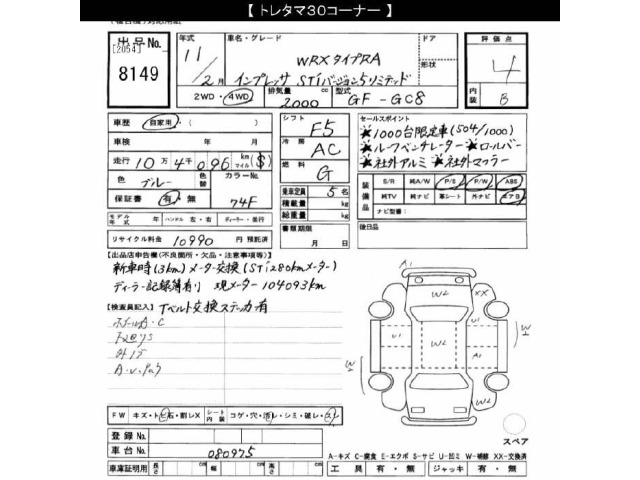 【 トレタマ30コーナー 】
出品No.
[2054]
8149
年式 車名・グレード ドア 評価点
11/2月 WRXタイプRA 形状 4
インプレッサ STiバージョン5リミテッド
2WD・4WD 排気量 2000 cc 型式 GF-GC8 内装 B
車歴 自家用・( )
車検 年 月
走行 10万4千096 km マイル ($)
色 ブルー 色替 カラーNo.
保証書 有・無 74F
シフト F5
冷房 AC
燃料 G
乗車定員 5名
積載量 kg
総重量 kg
書類期限
月 日
セールスポイント
★1000台限定車(504/1000)
★ルーフベンチレーター★ロールバー
★社外アルミ ★社外マフラー
装備品 S/R 純A/W P/S P/W ABS
純TV 純ナビ 革シート 外ナビ エアB
ナビ型番:
後日品
モデル年式 年 ハンドル 左・右 ディーラー・並行
リサイクル料金 10990 円 預託済
【出品店申告欄(不良箇所・欠品・注意事項等)】
新車時(3km)メーター交換(STi280kmメーター)
ディーラー記録簿有り 現メーター104093km
【検査員記入】 Tベルト交換ステッカ有
A1
W2
XX
U1
U1
W2
A1
W1
W1
W2
FW キズ・トビ石・割レX シート内装 コゲ・穴・汚レ・シミ・破レ・スレ
登録No.
車台No. 080975
車庫証明用 長さ cm 幅 cm 高さ cm
スペア
A-キズ C-腐食 E-エクボ S-サビ U-凹ミ W-補修 XX-交換済
工具 有・無 ジャッキ 有・無